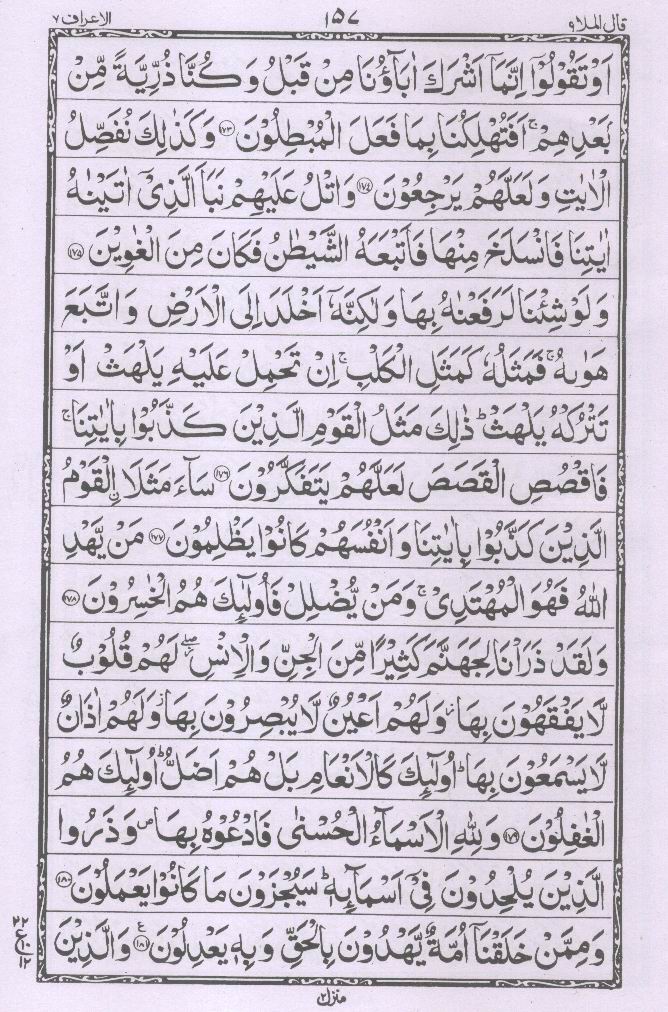 قال الملا ٩ ١٥٧ الاعراف ٧
اَوْ تَقُوْلُوْۤا اِنَّمَاۤ اَشْرَكَ اٰبَآؤُنَا مِنْ قَبْلُ وَ كُنَّا ذُرِّیَّةً مِّنْۢ
بَعْدِهِمْ ۚ اَفَتُهْلِكُنَا بِمَا فَعَلَ الْمُبْطِلُوْنَ ﴿۱۷۳﴾ وَ كَذٰلِكَ نُفَصِّلُ
الْاٰیٰتِ وَ لَعَلَّهُمْ یَرْجِعُوْنَ ﴿۱۷۴﴾ وَ اتْلُ عَلَیْهِمْ نَبَاَ الَّذِیْۤ اٰتَیْنٰهُ
اٰیٰتِنَا فَانْسَلَخَ مِنْهَا فَاَتْبَعَهُ الشَّیْطٰنُ فَكَانَ مِنَ الْغٰوِیْنَ ﴿۱۷۵﴾
وَ لَوْ شِئْنَا لَرَفَعْنٰهُ بِهَا وَ لٰكِنَّهٗۤ اَخْلَدَ اِلَی الْاَرْضِ وَ اتَّبَعَ
هَوٰىهُ ۚ فَمَثَلُهٗ كَمَثَلِ الْكَلْبِ ۚ اِنْ تَحْمِلْ عَلَیْهِ یَلْهَثْ اَوْ
تَتْرُكْهُ یَلْهَثْ ؕ ذٰلِكَ مَثَلُ الْقَوْمِ الَّذِیْنَ كَذَّبُوْا بِاٰیٰتِنَا ۚ
فَاقْصُصِ الْقَصَصَ لَعَلَّهُمْ یَتَفَكَّرُوْنَ ﴿۱۷۶﴾ سَآءَ مَثَلَا ِۨالْقَوْمُ
الَّذِیْنَ كَذَّبُوْا بِاٰیٰتِنَا وَ اَنْفُسَهُمْ كَانُوْا یَظْلِمُوْنَ ﴿۱۷۷﴾ مَنْ یَّهْدِ
اللّٰهُ فَهُوَ الْمُهْتَدِیْ ۚ وَ مَنْ یُّضْلِلْ فَاُولٰٓىِٕكَ هُمُ الْخٰسِرُوْنَ ﴿۱۷۸﴾
وَ لَقَدْ ذَرَاْنَا لِجَهَنَّمَ كَثِیْرًا مِّنَ الْجِنِّ وَ الْاِنْسِ ۖؗ لَهُمْ قُلُوْبٌ
لَّا یَفْقَهُوْنَ بِهَا ؗ وَ لَهُمْ اَعْیُنٌ لَّا یُبْصِرُوْنَ بِهَا ؗ وَ لَهُمْ اٰذَانٌ
لَّا یَسْمَعُوْنَ بِهَا ؕ اُولٰٓىِٕكَ كَالْاَنْعَامِ بَلْ هُمْ اَضَلُّ ؕ اُولٰٓىِٕكَ هُمُ
الْغٰفِلُوْنَ ﴿۱۷۹﴾ وَ لِلّٰهِ الْاَسْمَآءُ الْحُسْنٰی فَادْعُوْهُ بِهَا ۪ وَ ذَرُوا
الَّذِیْنَ یُلْحِدُوْنَ فِیْۤ اَسْمَآىِٕهٖ ؕ سَیُجْزَوْنَ مَا كَانُوْا یَعْمَلُوْنَ ﴿۱۸۰﴾
وَ مِمَّنْ خَلَقْنَاۤ اُمَّةٌ یَّهْدُوْنَ بِالْحَقِّ وَ بِهٖ یَعْدِلُوْنَ ﴿۱۸۱﴾ ع وَ الَّذِیْنَ
٢٢
ع ١٠
١٢
منزل ٢